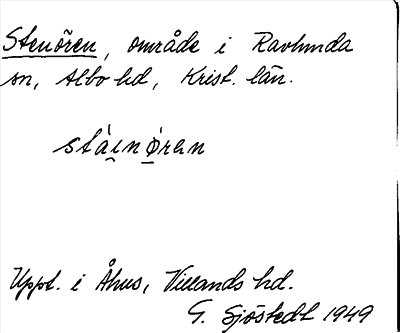 Stenören, område i Ravlunda
sn, Albo hd, Krist. län.
stàɩ̯nø̀rɘn
Uppt. i Åhus, Villands hd.
G. Sjöstedt 1949